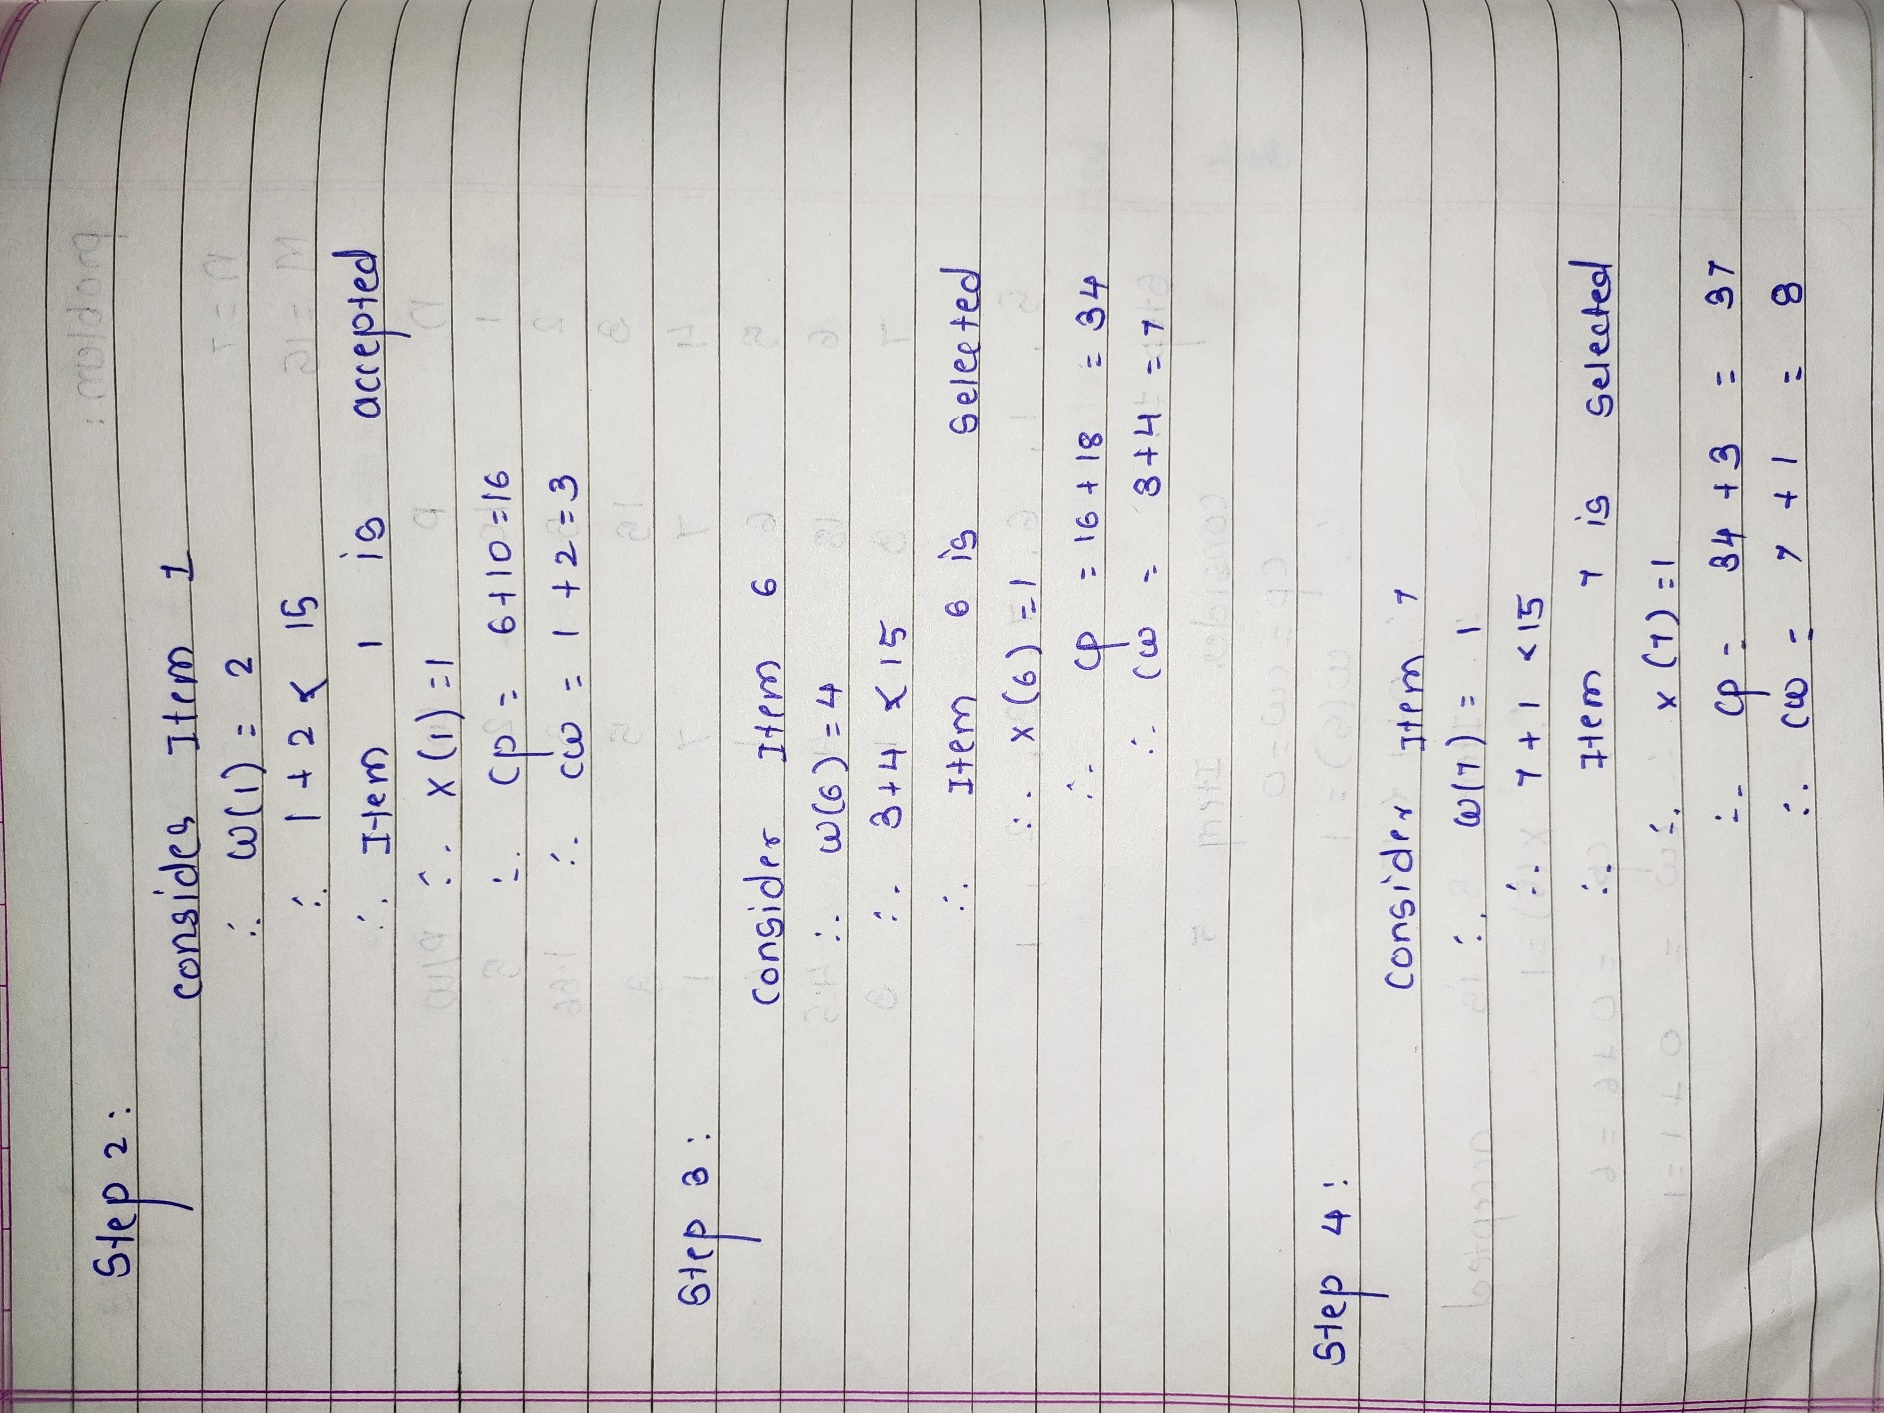 Step 2:
Consider Item 1
∴ w(1) = 2
∴ 1 + 2 < 15
∴ Item 1 is accepted
∴ x(1) = 1
∴ cp = 6+10=16
∴ cw = 1+2=3
Step 3:
Consider Item 6
∴ w(6) = 4
∴ 3+4 < 15
∴ Item 6 is selected
∴ x(6) = 1
∴ cp = 16+18 = 34
∴ cw = 3+4 = 7
Step 4:
Consider Item 7
∴ w(7) = 1
∴ 7+1 < 15
∴ Item 7 is selected
∴ x(7) = 1
∴ cp = 34 + 3 = 37
∴ cw = 7 + 1 = 8